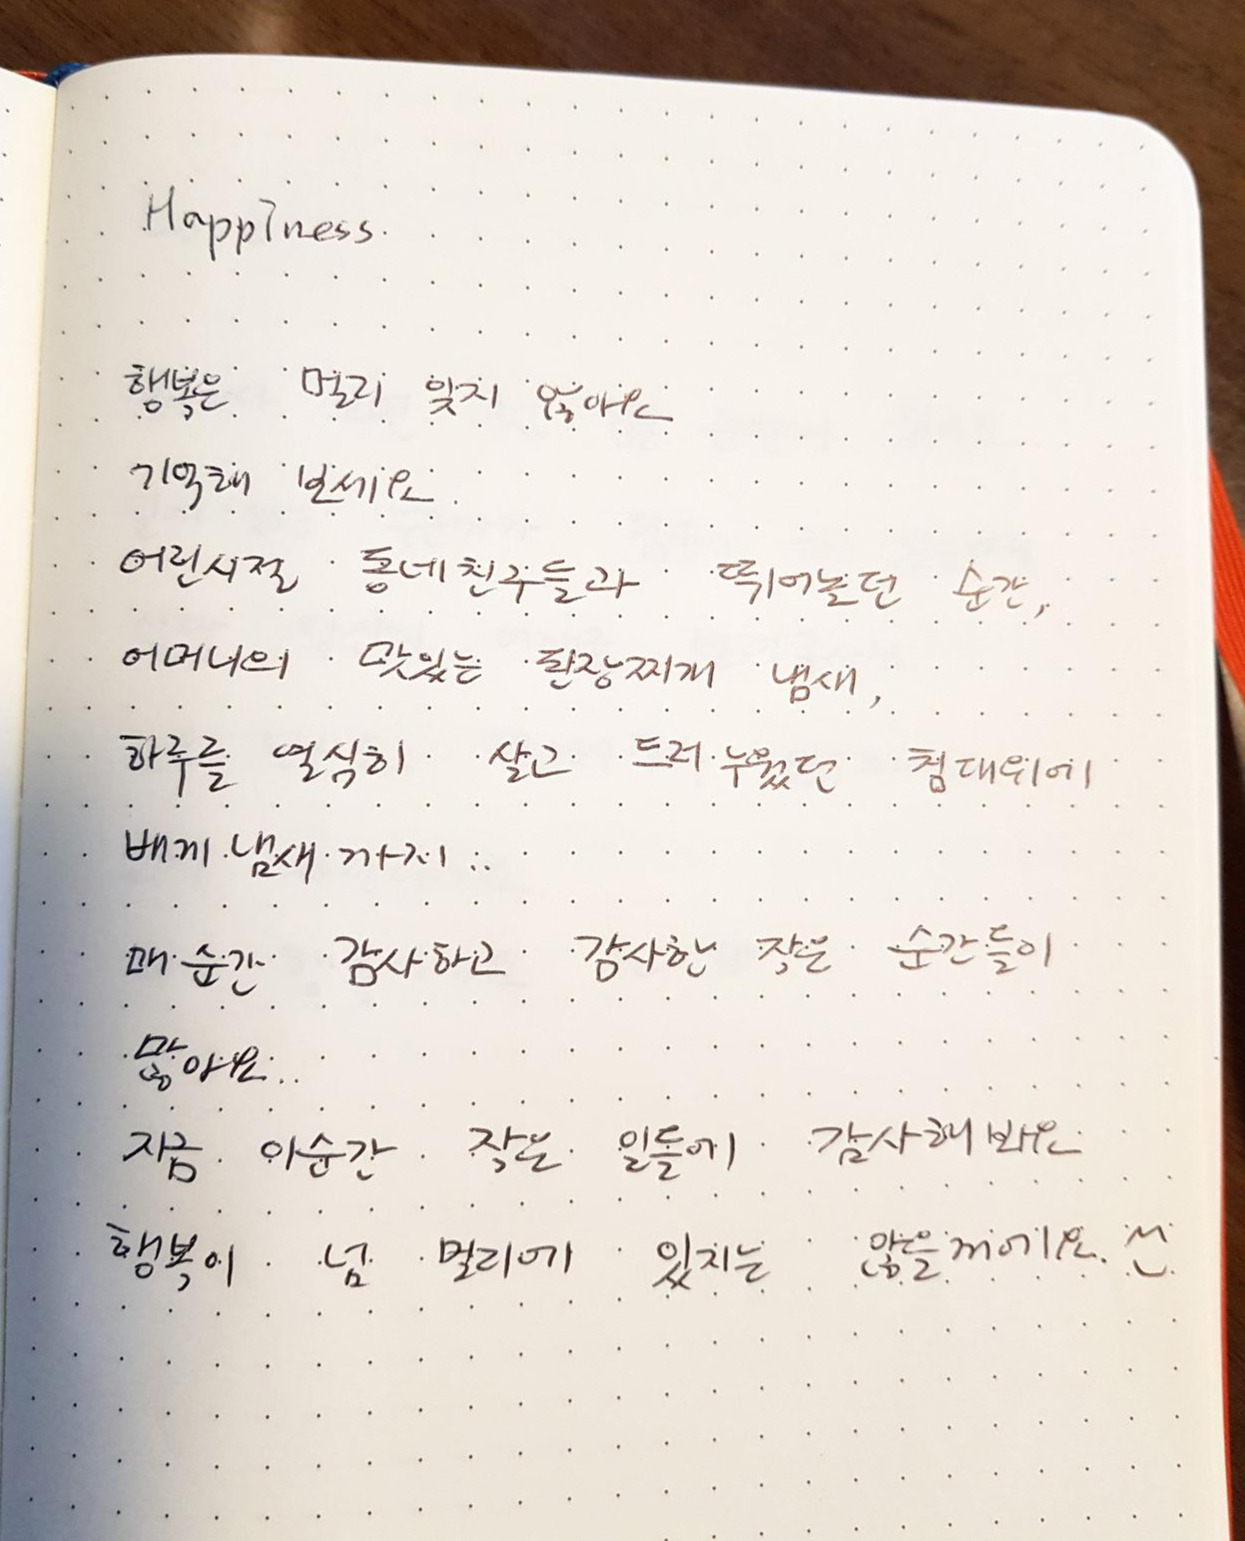 Happiness
행복은 멀리 잊지 않아요
기억해 보세요.
어린시절 동네친구들과 뛰어놀던 순간,
어머니의 맛있는 된장찌개 냄새,
하루를 열심히 살고 드러누웠던 침대위에
베게 냄새까지..
매순간 감사하고 감사한 작은 순간들이
많아요..
지금 이순간 작은 일들에 감사해봐요
행복이 넘 멀리에 있지는 않을꺼에요.